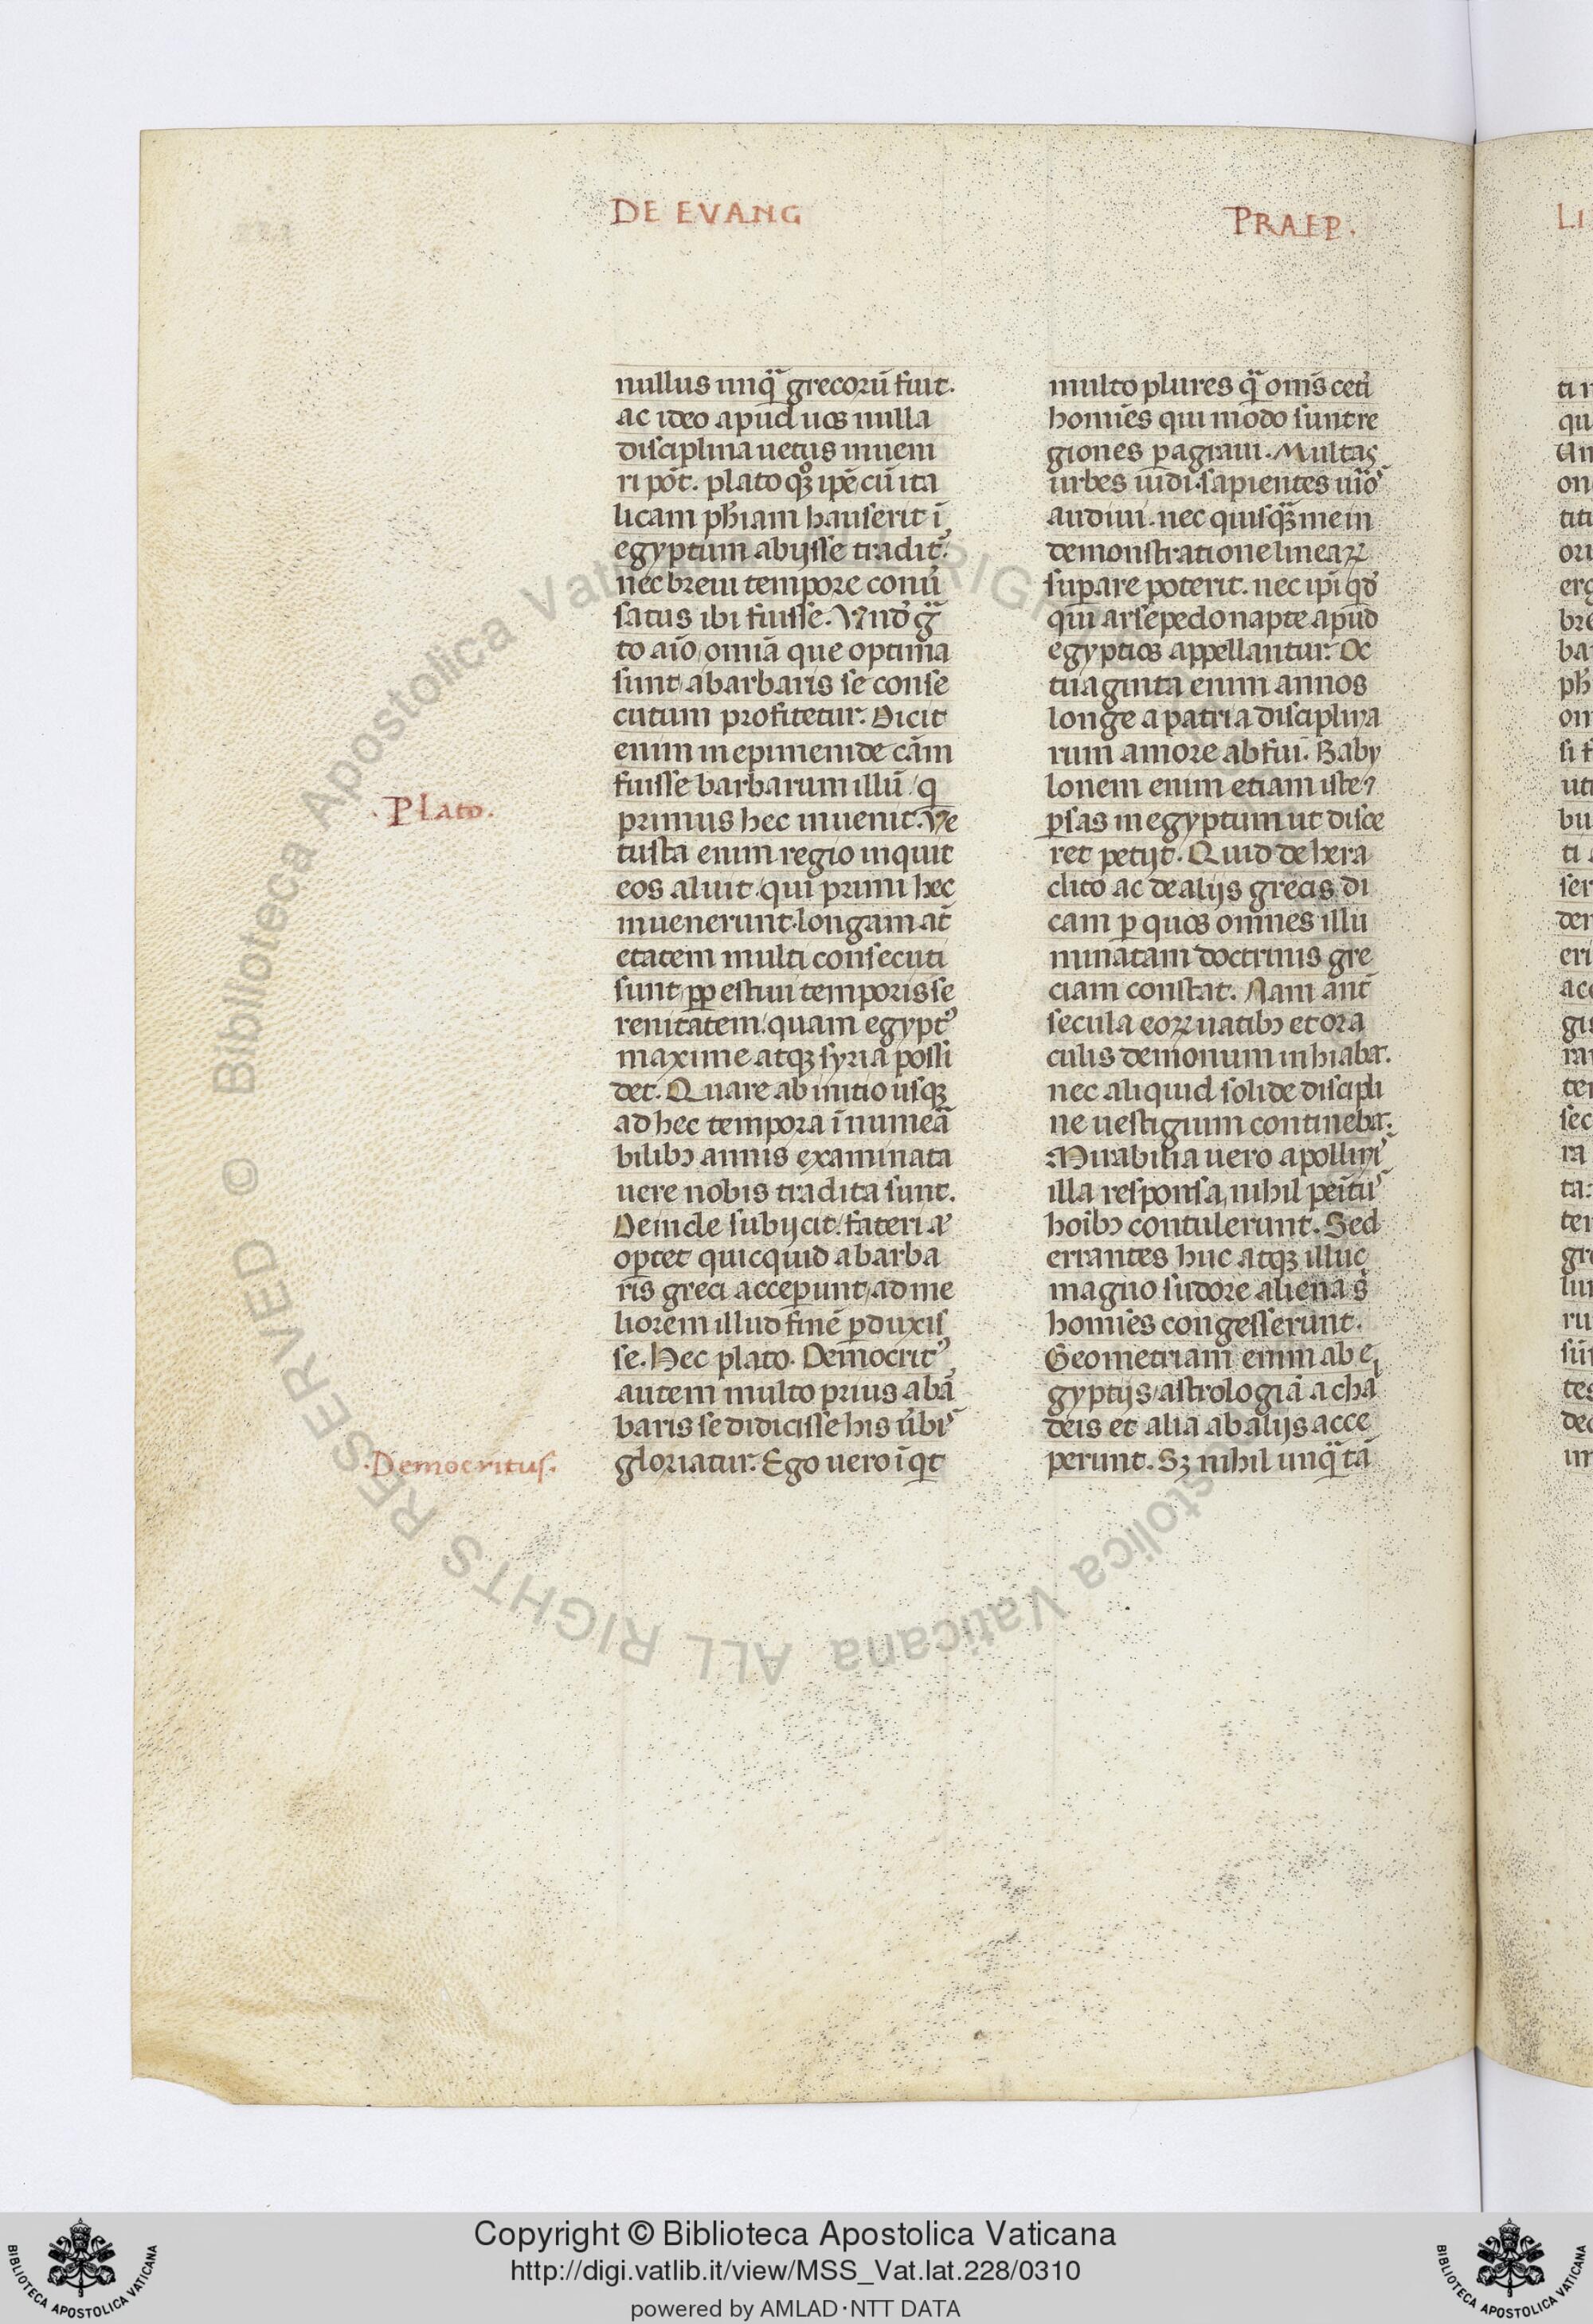 DE EVANG
PRAEP.
nullus unq̃ grecorũ fuit.
ac ideo apud uos nulla
disciplina uetus inueni
ri pót. plato qꝫ ipẽ cũ ita
licam phĩam hauserit ĩ
egyptum abijsse tradit᷑.
nec breui tempore conũ
satus ibi fuisse. Vnd̃ q̃
to aĩo omĩa que optima
sunt a barbaris se conse
cutum profitetur. Dicit
enim in epimenide cãm
fuisse barbarum illũ / q
·Plato.
primus hec inuenit. Ve
tusta enim regio inquit
eos aluit qui primi hec
inuenerunt. longam aũt
etatem multi consecuti
sunt ꝓp estiui temporis se
renitatem. quam egyptꝰ
maxime atqꝫ syria possi
det. Quare ab initio usqꝫ
ad hec tempora ĩnumeã
bilibꝫ annis examinata
uere nobis tradita sunt.
Deinde subijcit. fateri
oꝑtet quicquid a barba
ris greci acceꝑunt, ad me
liorem illud finẽ ꝑduxis
se. Hec plato. Democritꝰ
autem multo prius a bã
baris se didicisse his ũbiˢ
·Democritus.
gloriatur. Ego uero ĩqͥt
multo plures q̃ om̃s ceti
homĩes qui modo sunt re
giones ꝑagraui. Multas
urbes uidi. sapientes uĩo
audiui. nec quisq̃ me in
demonstratione lineaꝝ
suꝑare poterit. nec ipĩ qd̃
qui arsepedonapte apud
egyptios appellantur. Oc
tuaginta enim annos
longe a patria disciplina
rum amore abfui. Baby
lonem enim etiam iste ⁊
ꝑsas in egyptum ut disce
ret petijt. Quid de hera
clito ac de alijs grecis di
cam ꝑ quos omnes illu
minatam doctrinis gre
ciam constat. Nam ant̃
secula eoꝝ uatibꝫ et ora
culis demonum inhiabat.
nec aliquid solide discipli
ne uestigium continebat.
Mirabilia uero apollinis
illa responsa, nihil peĩtus
hoĩbꝫ contulerunt. Sed
errantes huc atqꝫ illuc
magno sudore aliena s̃
homĩes congesserunt.
Geometriam enim ab e
gyptijs / astrologiã a chã
deis et alia ab alijs acce
perunt. Sꝫ nihil unq̃ tã
Copyright © Biblioteca Apostolica Vaticana
http://digi.vatlib.it/view/MSS_Vat.lat.228/0310
powered by AMLAD·NTT DATA